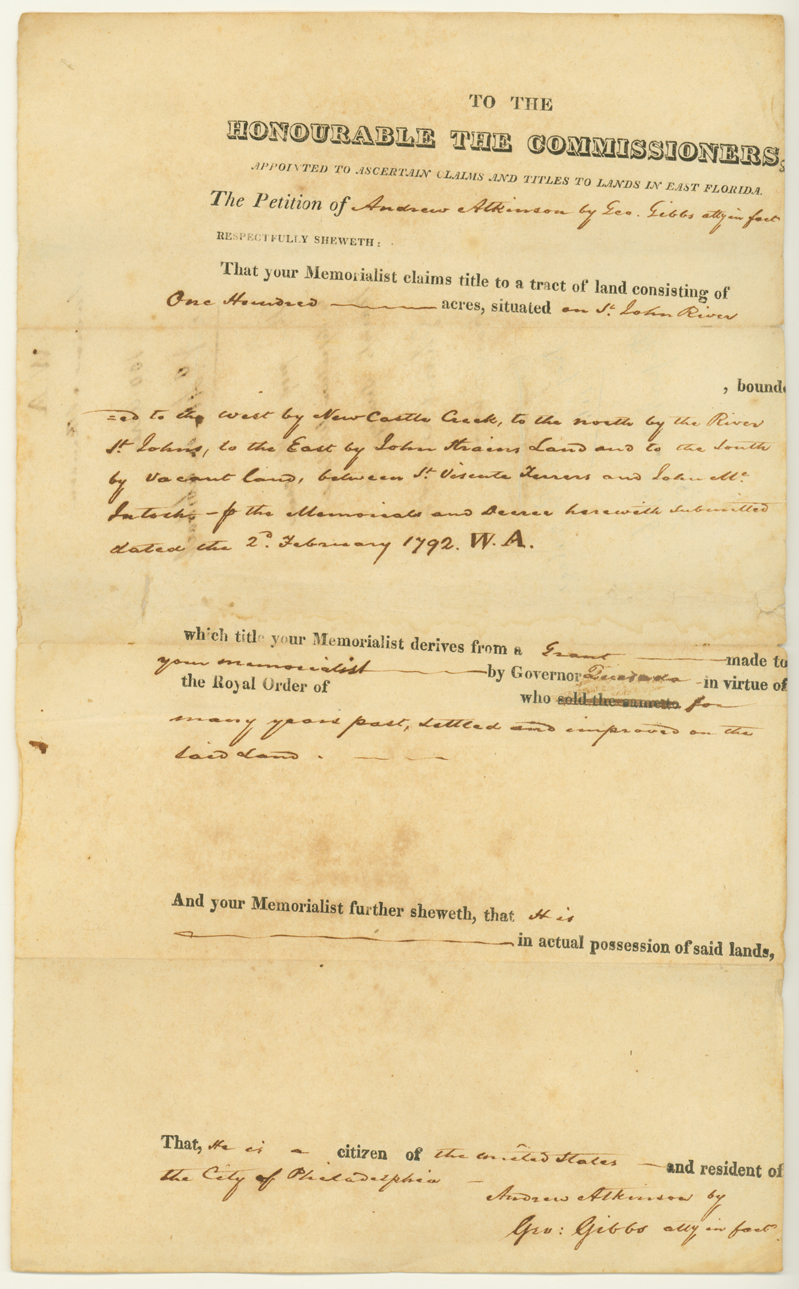 TO THE
HONOURABLE THE COMMISSIONERS,
APPOINTED TO ASCERTAIN CLAIMS AND TITLES TO LANDS IN EAST FLORIDA.
The Petition of Andrew Atkinson by Geo. Gibbs atty in fact
RESPECTFULLY SHEWETH:
That your Memorialist claims title to a tract of land consisting of
One Hundred acres, situated on St. John River
, bounde
=ed to the west by New Castle Creek, to the north by the River
St. Johns, to the East by John Strains Land and to the South
by vacant land, between St. Visente Ferrers and John Mc.
Intosh, - p the Memorials and Decree herewith submitted
dated the 2d. February 1792. W. A.
which title your Memorialist derives from a Grant made to
your memorialist by Governor Quesada in virtue of
the Royal Order of who sold the same to for
many years past, settled and improved on the
said Land .
And your Memorialist further sheweth, that He is
in actual possession of said lands,
That, He is a citizen of the United States and resident of
the City of Philadelphia
Andrew Atkinson by
Geo: Gibbs atty in fact.